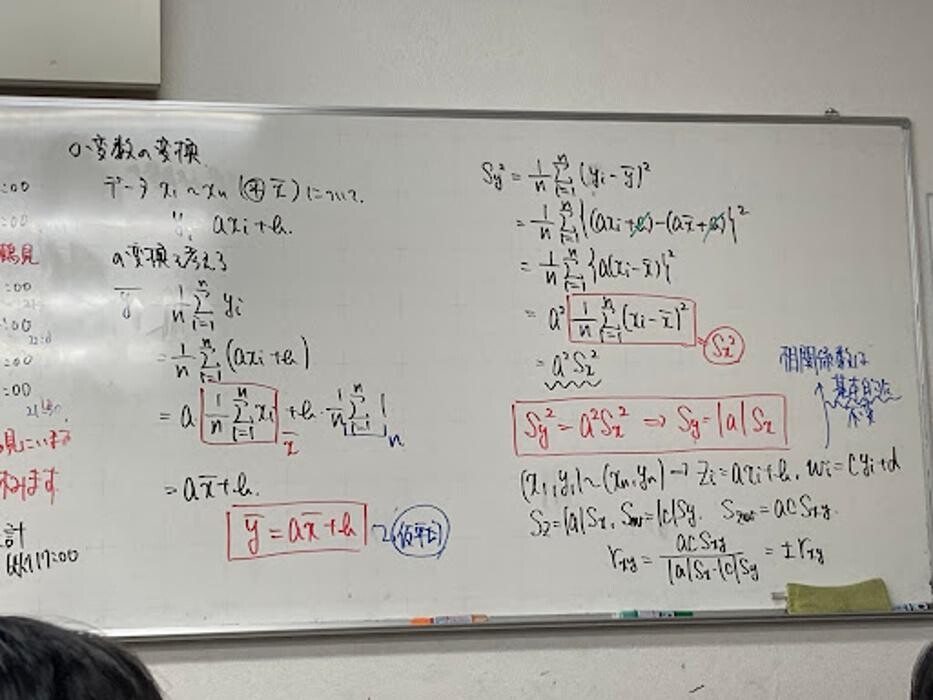 :00
:00
鶴見
:00
:00
:00
:00
計
17:00
○変数の変換
データ x₁〜xₙ (平均 x̄) について
yᵢ axᵢ+b.
の変換を考える
ȳ = 1/n Σⁿᵢ₌₁ yᵢ
= 1/n Σⁿᵢ₌₁ (axᵢ+b)
= a 1/n Σⁿᵢ₌₁ xᵢ + b · 1/n Σⁿᵢ₌₁ 1
x̄ n
= ax̄+b.
ȳ = ax̄+b (仮平均)
Sy² = 1/n Σⁿᵢ₌₁ (yᵢ-ȳ)²
= 1/n Σⁿᵢ₌₁ {(axᵢ+b)-(ax̄+b)}²
= 1/n Σⁿᵢ₌₁ {a(xᵢ-x̄)}²
= a² 1/n Σⁿᵢ₌₁ (xᵢ-x̄)² = Sx²
= a²Sx²
Sy² = a²Sx² → Sy = |a| Sx
相関係数は
基本
不変
(x₁,y₁)〜(xₙ,yₙ) → zᵢ=axᵢ+b, wᵢ=cyᵢ+d
Sz=|a|Sx, Sw=|c|Sy, Szw=acSxy.
rxy = acSxy/|a|Sx·|c|Sy = ±rxy